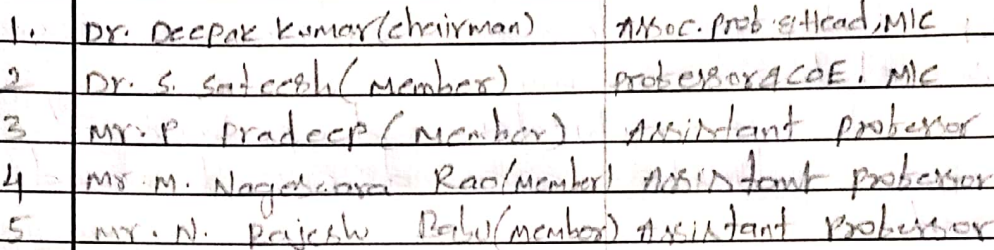 1. Dr. Deepak Kumar(chairman) Assoc. prof & Head, MIC
2 Dr. S. Sateesh (Member) professor & COE. MIC
3 Mr. P Pradeep (Member) Assistant professor
4 Mr M. Rao(Member) Assistant professor
5 Mr. N. Rajesh Babu(member) Assistant professor